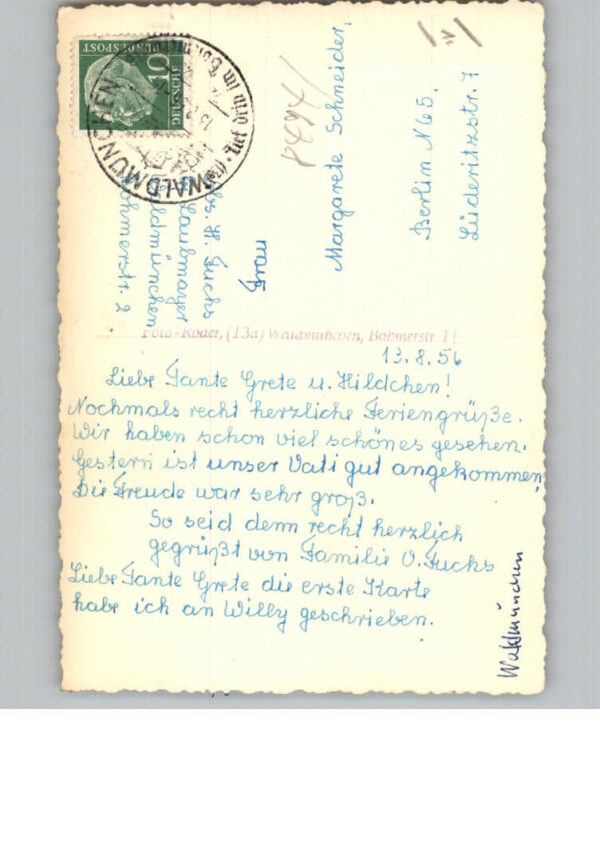 10
DEUTSCHE
BUNDESPOST
WALDMÜNCHEN
H. Fuchs
Laubmayer
Waldmünchen
Böhmerstr. 2
Frau
Margarete Schneider.
Berlin N65.
Lüderitzstr. 7
Foto-Röder, (13a) Waldmünchen, Böhmerstr 11
13.8.56
Liebe Tante Grete u. Hildchen!
Nochmals recht herzliche Feriengrüße.
Wir haben schon viel schönes gesehen.
Gestern ist unser Vati gut angekommen.
Die Freude war sehr groß.
So seid denn recht herzlich
gegrüßt von Familie O. Fuchs
Liebe Tante Grete die erste Karte
habe ich an Willy geschrieben.
Waldmünchen